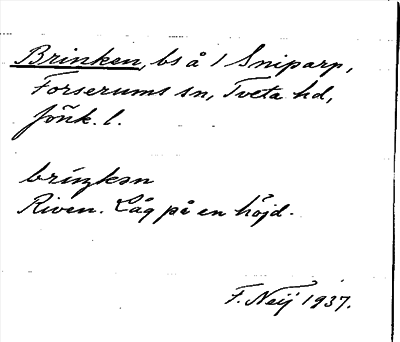 Brinken, bs å 1 Sniparp,
Forserums sn, Tveta hd,
Jönk. l.
briŋkən
Riven. Låg på en höjd.
F. Neij 1937.